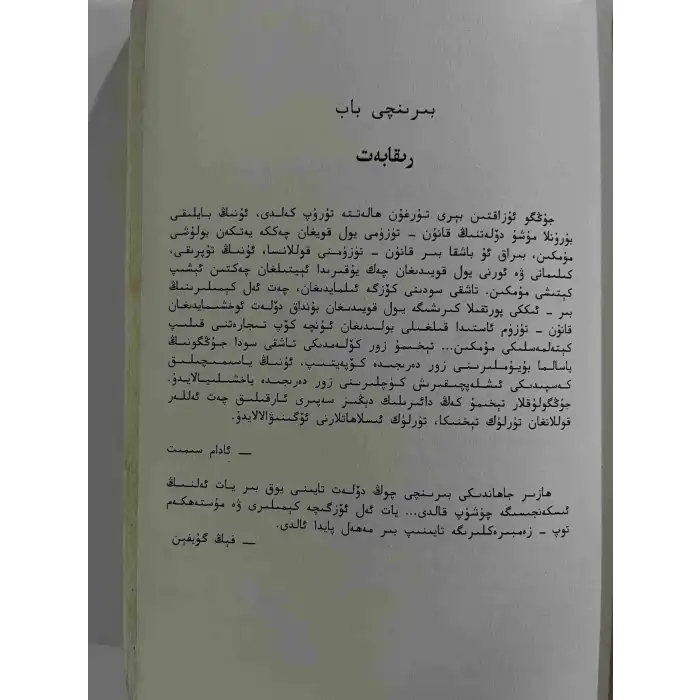 بىرىنچى باب
رىقابەت
جۇڭگو ئۇزاقتىن بېرى تۇرغۇن ھالەتتە تۇرۇپ كەلدى، ئۇنىڭ بايلىقى
بۇرۇنلا مۇشۇ دۆلەتنىڭ قانۇن - تۈزۈمى يول قويغان چەككە يەتكەن بولۇشى
مۇمكىن، بىراق ئۇ باشقا بىر قانۇن - تۈزۈمنى قوللانسا، ئۇنىڭ تۇپرىقى،
كىلىماتى ۋە ئورنى يول قويىدىغان چەك يۇقىرىدا ئېيتىلغان چەكتىن ئېشىپ
كېتىشى مۇمكىن. تاشقى سودىنى كۆزگە ئىلمايدىغان، چەت ئەل كېمىلىرىنىڭ
بىر - ئىككى پورتقىلا كىرىشىگە يول قويىدىغان بۇنداق دۆلەت ئوخشىمايدىغان
قانۇن - تۈزۈم ئاستىدا قىلغىلى بولىدىغان ئۇنچە كۆپ تىجارەتنى قىلىپ
كېتەلمەسلىكى مۇمكىن... تېخىمۇ زور كۆلەمدىكى تاشقى سودا جۇڭگونىڭ
ياسالما بۇيۇملىرىنى زور دەرىجىدە كۆپەيتىپ، ئۇنىڭ ياسىمىچىلىق
كەسپىدىكى ئىشلەپچىقىرىش كۈچلىرىنى زور دەرىجىدە ياخشىلىيالايدۇ.
جۇڭگولۇقلار تېخىمۇ كەڭ دائىرىلىك دېڭىز سەپىرى ئارقىلىق چەت ئەللەر
قوللانغان تۈرلۈك تېخنىكا، تۈرلۈك ئىسلاھاتلارنى ئۆگىنىۋالالايدۇ.
— ئادام سىمىت
ھازىر جاھاندىكى بىرىنچى چوڭ دۆلەت تايىنى يوق بىر يات ئەلنىڭ
ئىسكەنجىسىگە چۈشۈپ قالدى... يات ئەل ئۆزگىچە كېمىلىرى ۋە مۇستەھكەم
توپ - زەمبىرەكلىرىگە تايىنىپ بىر مەھەل پايدا ئالدى.
— فېڭ گۇيفېن